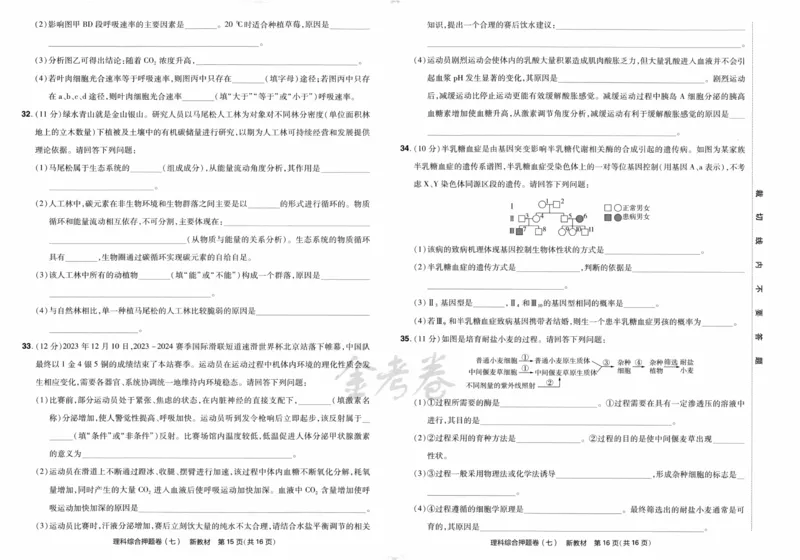 (2)影响图甲BD段呼吸速率的主要因素是________。20 ℃时适合种植草莓,原因是________
________________。
(3)分析图乙可得出结论:随着CO₂浓度升高,________________。
(4)若叶肉细胞光合速率等于呼吸速率,则图丙中只存在________(填字母)途径;若图丙中只存
在a、b、c、d途径,则叶肉细胞光合速率________(填“大于”“等于”或“小于”)呼吸速率。
32.(11分)绿水青山就是金山银山。研究人员以马尾松人工林为对象对不同林分密度(单位面积林
地上的立木数量)下植被及土壤中的有机碳储量进行研究,以期为人工林可持续经营和发展提供
理论依据。请回答下列问题:
(1)马尾松属于生态系统的________(组成成分),从能量流动角度分析,其作用是________
________________。
(2)人工林中,碳元素在非生物环境和生物群落之间主要是以________的形式进行循环的。物质
循环和能量流动相互依存,不可分割,主要体现在:________________
________________(从物质与能量的关系分析)。生态系统的物质循环
具有________,生物圈通过碳循环实现碳元素的自给自足。
(3)该人工林中所有的动物________(填“能”或“不能”)构成一个群落,原因是________
________________。
(4)与自然林相比,单一种植马尾松的人工林比较脆弱的原因是________________
________________。
33.(12分)2023年12月10日,2023－2024赛季国际滑联短道速滑世界杯北京站落下帷幕,中国队
最终以1金4银5铜的成绩结束了本站赛事。运动员在运动过程中机体内环境的理化性质会发
生相应变化,需要各器官、系统协调统一地维持内环境稳态。请回答下列问题:
(1)比赛前,部分运动员处于紧张、焦虑的状态,在内脏神经的直接支配下,________(填激素名
称)分泌增加,使人警觉性提高、呼吸加快。运动员听到发令枪响后立即起步,该反射属于__
________(填“条件”或“非条件”)反射。比赛场馆内温度较低,低温促进人体分泌甲状腺激素
的意义为________________。
(2)运动员在滑道上不断通过蹬冰、收腿、摆臂进行加速,该过程中体内血糖不断氧化分解,耗氧
量增加,同时产生的大量CO₂进入血液后使呼吸运动加快加深。血液中CO₂含量增加使呼
吸运动加快加深的原因是________________。
(3)运动员比赛时,汗液分泌增加,赛后立刻饮大量的纯水不太合理,请结合水盐平衡调节的相关
理科综合押题卷(七) 新教材 第15页(共16页)
知识,提出一个合理的赛后饮水建议:________________
________________。
(4)运动员剧烈运动会使体内的乳酸大量积累造成肌肉酸胀乏力,但大量乳酸进入血液并不会引
起血浆pH发生显著的变化,其原因是________________。剧烈运动
后,减缓运动比停止运动更能有效缓解酸胀感觉。减缓运动过程中胰岛A细胞分泌的胰高
血糖素增加使血糖升高,从激素调节角度分析,减缓运动有利于缓解酸胀感觉的原因是____
________________。
34.(10分)半乳糖血症是由基因突变影响半乳糖代谢相关酶的合成引起的遗传病。如图为某家族
半乳糖血症的遗传系谱图,半乳糖血症受染色体上的一对等位基因控制(用基因A、a表示),不考
虑X、Y染色体同源区段的遗传。请回答下列问题:
Ⅰ 1 2
Ⅱ 3 4 5 6
Ⅲ 7 8 9 10 11
正常男女
患病男女
(1)该病的致病机理体现基因控制生物体性状的方式是________________。
(2)半乳糖血症的遗传方式是________,判断的依据是________________
________________。
(3)Ⅱ₅基因型是________,Ⅱ₄和Ⅲ₁₀的基因型相同的概率是________。
(4)若Ⅲ₉和半乳糖血症致病基因携带者结婚,则生一个患半乳糖血症男孩的概率为________。
35.(11分)如图是培育耐盐小麦的过程。请回答下列问题:
普通小麦细胞 ① 普通小麦原生质体 ③ 杂种细胞 ④ 杂种植物 筛选 耐盐小麦
中间偃麦草细胞 ① 中间偃麦草原生质体
不同剂量的紫外线照射 ②
(1)①过程所需要的酶是________________。①过程需要在具有一定渗透压的溶液中
进行,其目的是________________。
(2)②过程采用的育种方法是________________。②过程的目的是使中间偃麦草出现________
性状。
(3)③过程一般采用物理法或化学法诱导________________,形成杂种细胞的标志是__
________________。
(4)④过程遵循的细胞学原理是________________。最终筛选出的耐盐小麦通常是可
育的,其原因是________________。
理科综合押题卷(七) 新教材 第16页(共16页)
裁
切
线
内
不
要
答
题
金考卷